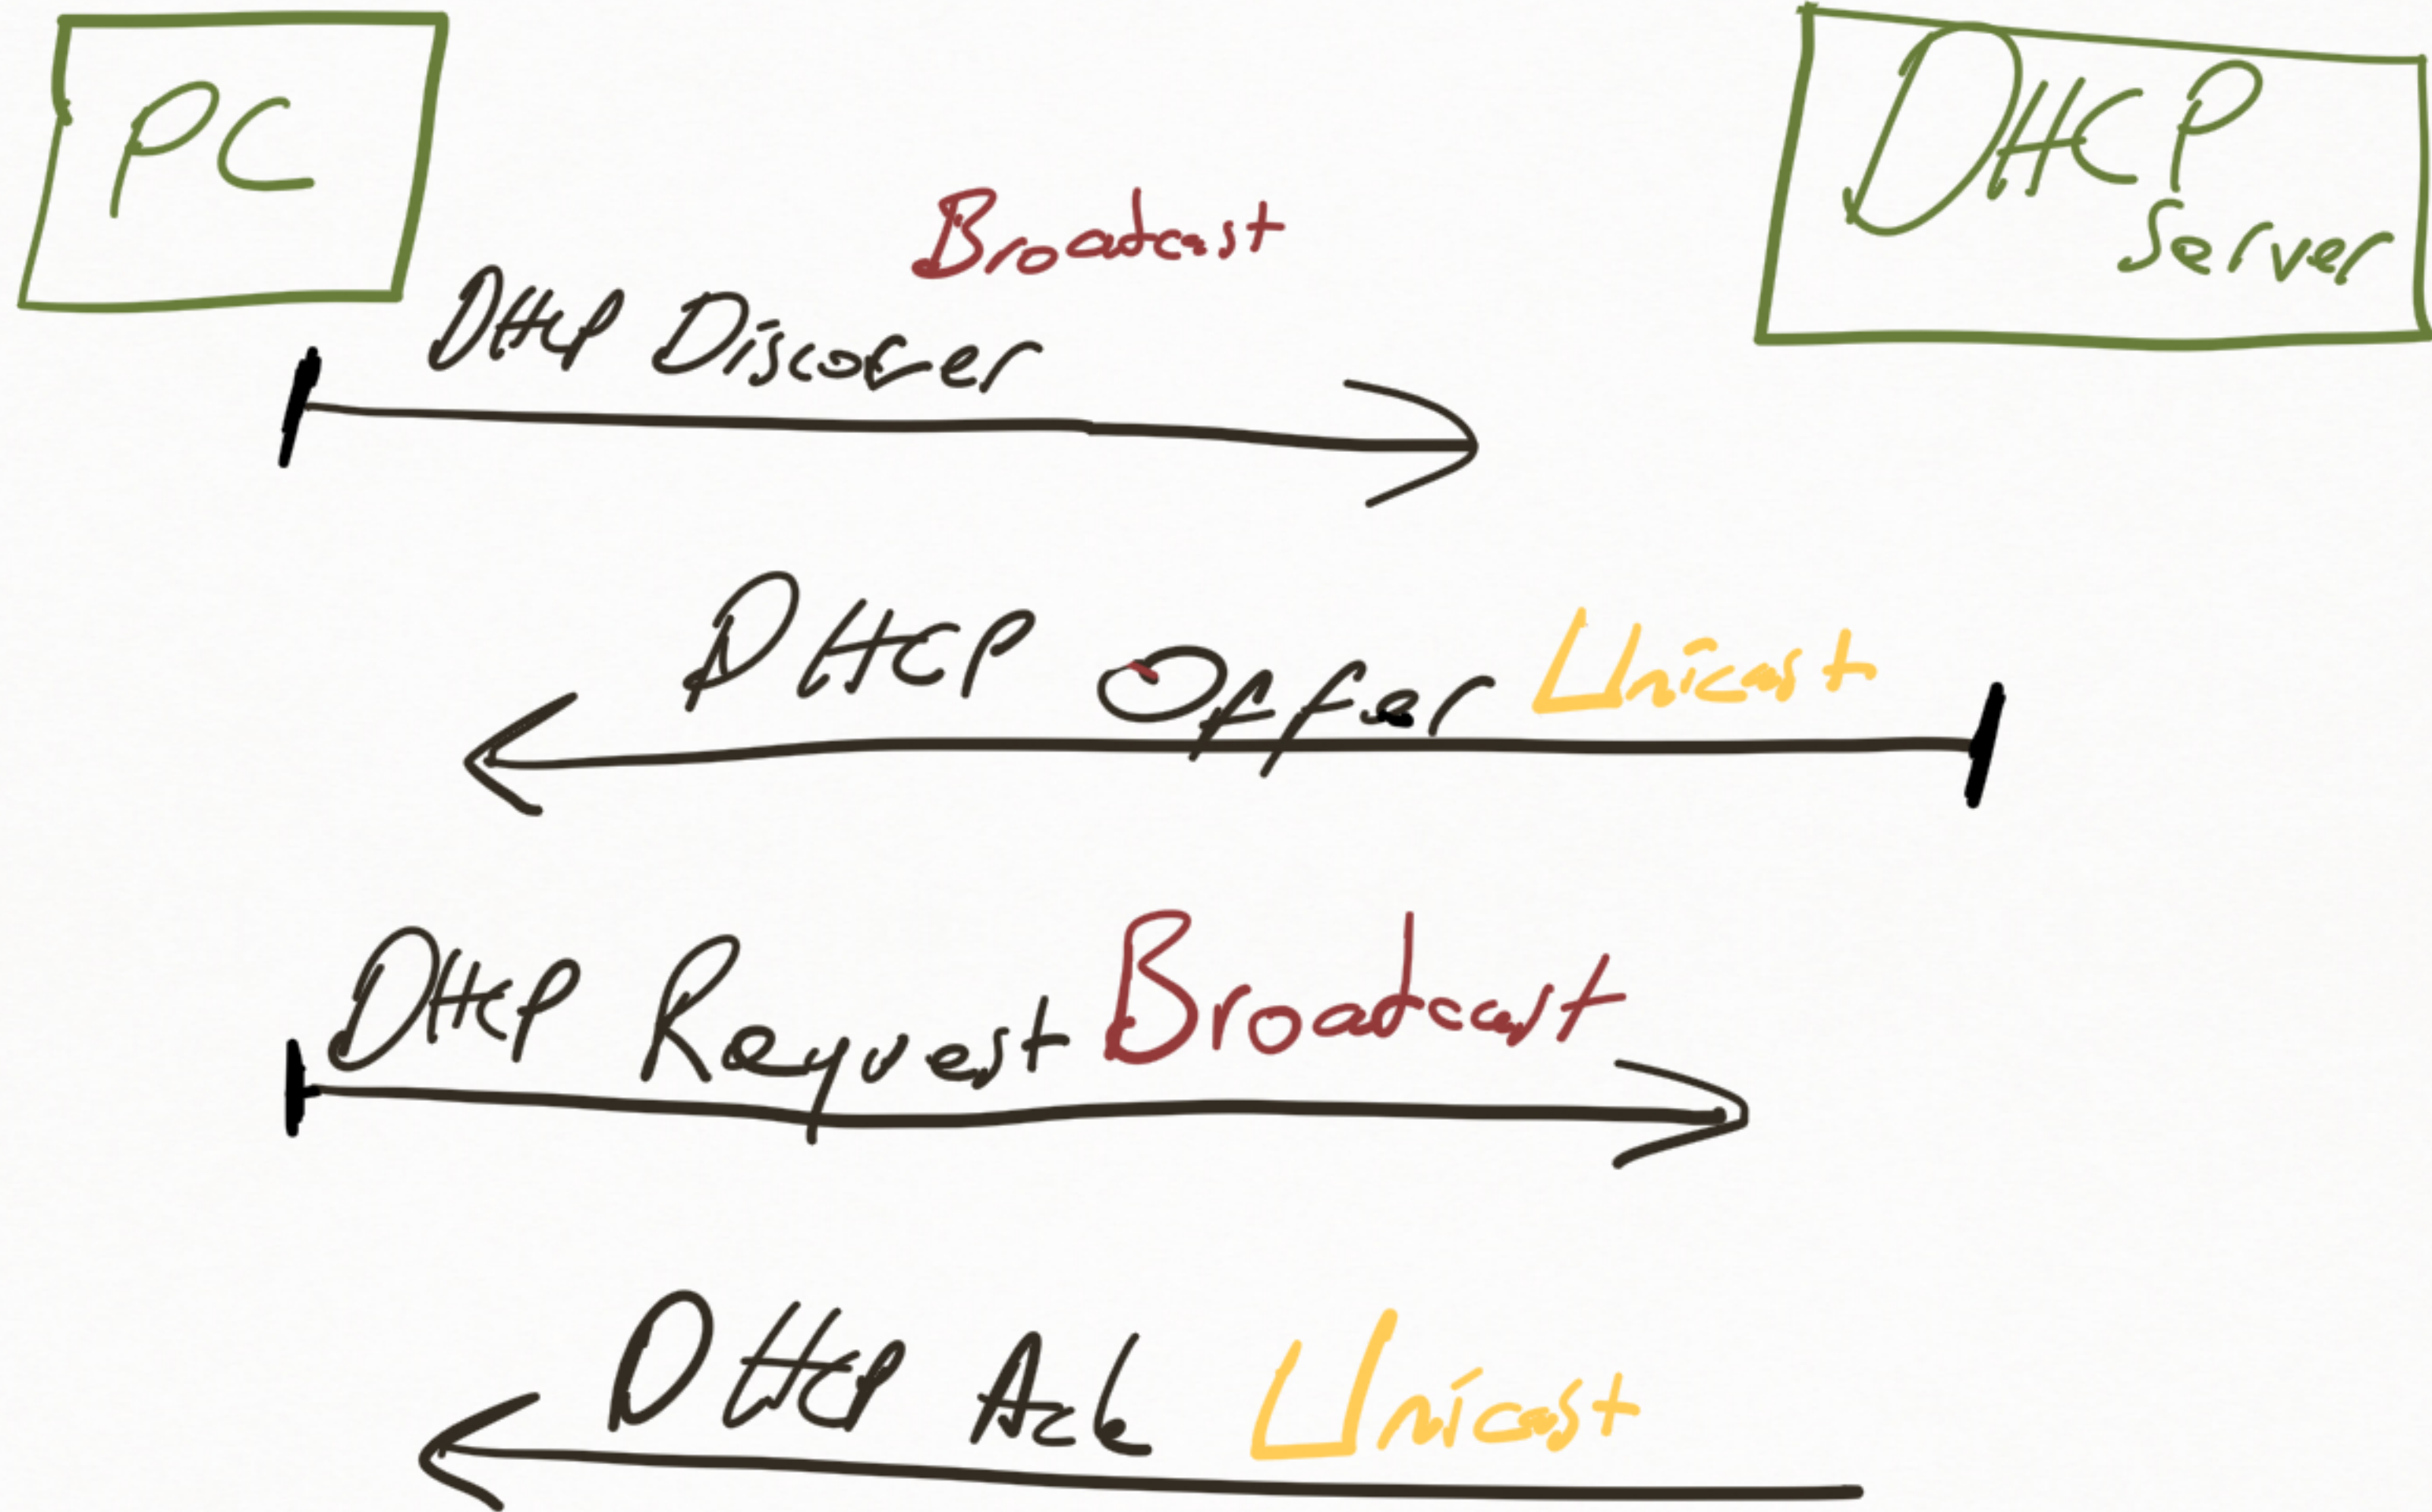 PC
DHCP
Server
Broadcast
DHCP Discover
DHCP Offer Unicast
DHCP Request Broadcast
DHCP Ack Unicast